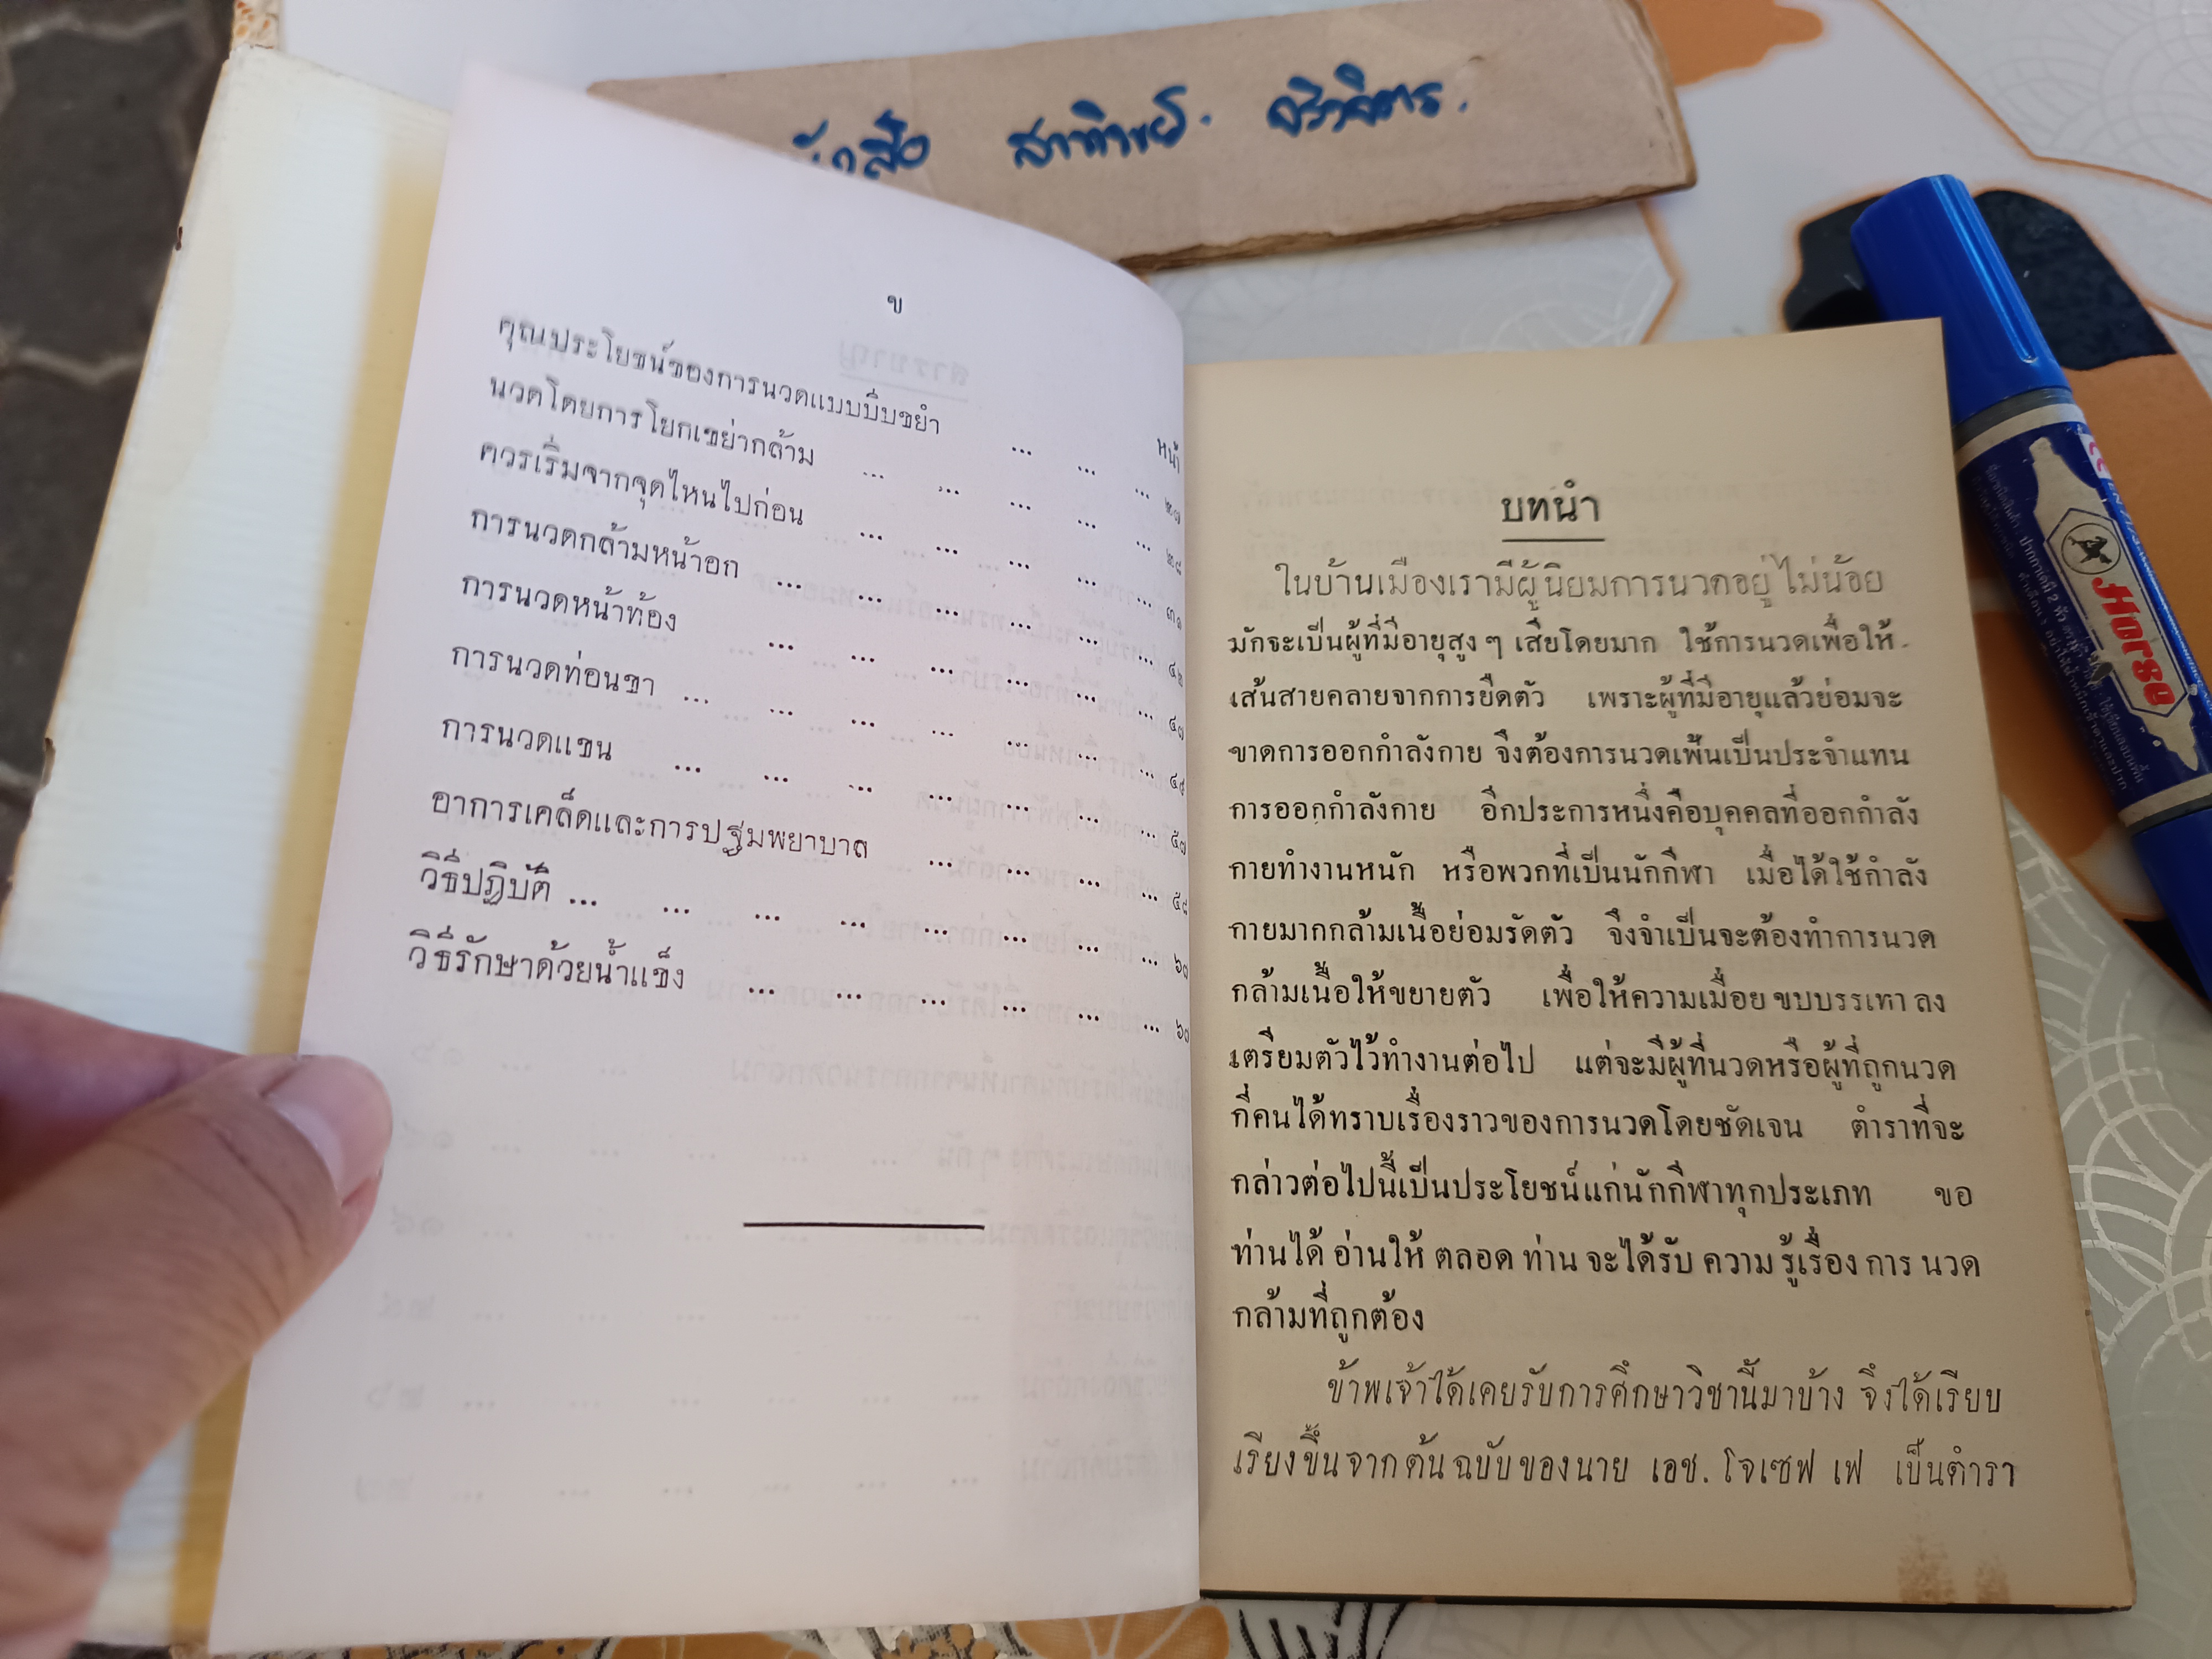 สาทิพย์.
ข
หน้า
คุณประโยชน์ของการนวดแบบบีบขยำ ... ... ... ๒๗
นวดโดยการโยกเขย่ากล้าม ... ... ... ... ... ๒๘
ควรเริ่มจากจุดไหนไปก่อน ... ... ... ... ... ๓๑
การนวดกล้ามหน้าอก ... ... ... ... ... ... ๔๒
การนวดหน้าท้อง ... ... ... ... ... ... ๔๗
การนวดท่อนขา ... ... ... ... ... ... ... ๔๙
การนวดแขน ... ... ... ... ... ... ... ๕๗
อาการเคล็ดและการปฐมพยาบาล ... ... ... ... ๕๙
วิธีปฏิบัติ ... ... ... ... ... ... ... ... ๖๗
วิธีรักษาด้วยน้ำแข็ง ... ... ... ... ... ... ๖๗
บทนำ
ในบ้านเมืองเรามีผู้นิยมการนวดอยู่ไม่น้อย
มักจะเป็นผู้ที่มีอายุสูง ๆ เสียโดยมาก ใช้การนวดเพื่อให้
เส้นสายคลายจากการยึดตัว เพราะผู้ที่มีอายุแล้วย่อมจะ
ขาดการออกกำลังกาย จึงต้องการนวดเฟ้นเป็นประจำแทน
การออกกำลังกาย อีกประการหนึ่งคือบุคคลที่ออกกำลัง
กายทำงานหนัก หรือพวกที่เป็นนักกีฬา เมื่อได้ใช้กำลัง
กายมากกล้ามเนื้อย่อมรัดตัว จึงจำเป็นจะต้องทำการนวด
กล้ามเนื้อให้ขยายตัว เพื่อให้ความเมื่อย ขบบรรเทา ลง
เตรียมตัวไว้ทำงานต่อไป แต่จะมีผู้ที่นวดหรือผู้ที่ถูกนวด
กี่คนได้ทราบเรื่องราวของการนวดโดยชัดเจน ตำราที่จะ
กล่าวต่อไปนี้เป็นประโยชน์แก่นักกีฬาทุกประเภท ขอ
ท่านได้ อ่านให้ ตลอด ท่าน จะได้รับ ความ รู้เรื่อง การ นวด
กล้ามที่ถูกต้อง
ข้าพเจ้าได้เคยรับการศึกษาวิชานี้มาบ้าง จึงได้เรียบ
เรียงขึ้นจากต้นฉบับของนาย เอช. โจเซฟ เฟ เป็นตำรา
ตราม้า
Horse